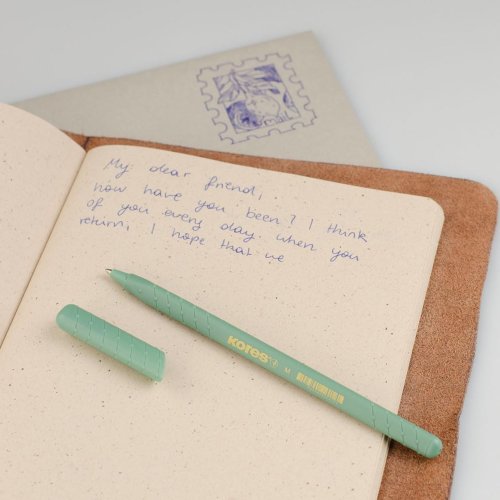 My dear friend,
how have you been? I think
of you every day. when you
return, I hope that we
Kores M